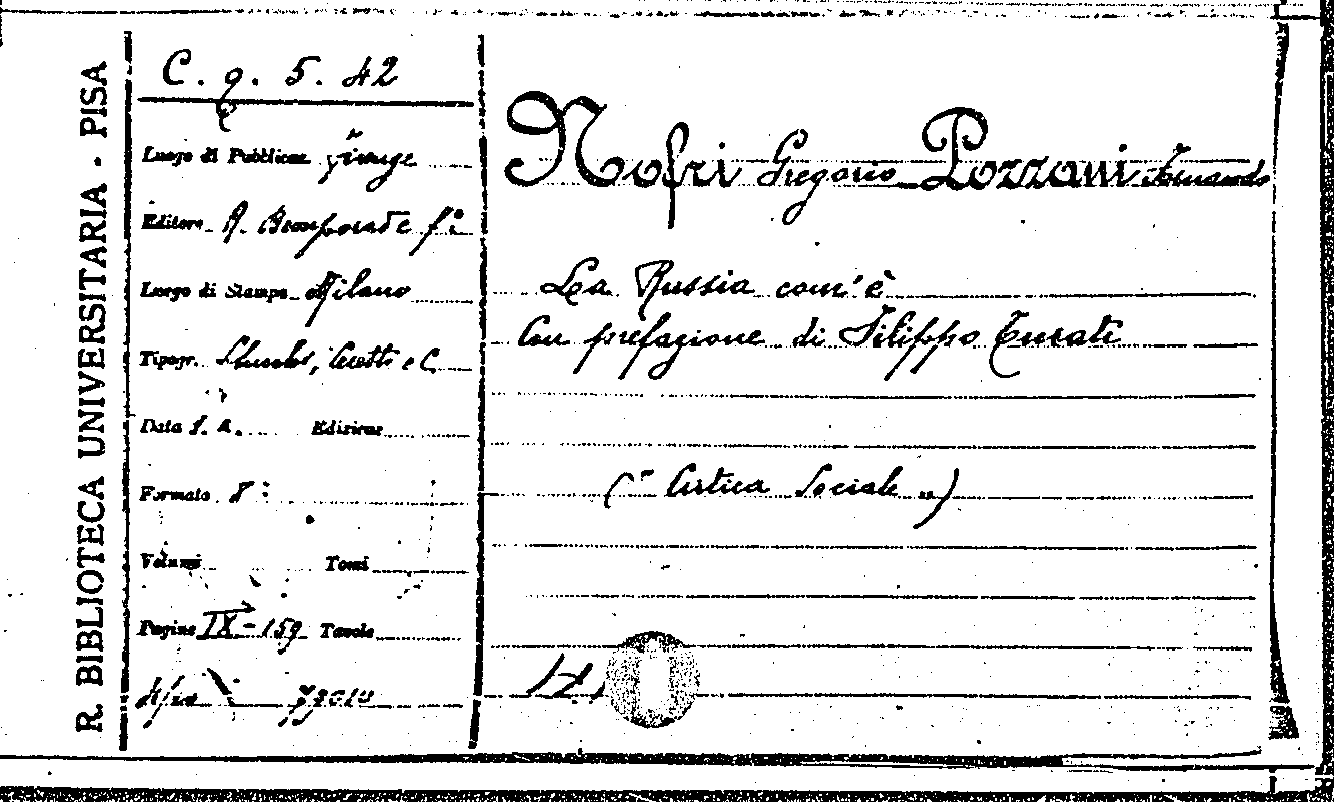 R. BIBLIOTECA UNIVERSITARIA - PISA
C. q. 5. 42
Luogo di Pubblicaz. Firenze
Editore R. Bemporad e f.º
Luogo di Stampa Milano
Tipogr. e C.
Data s. a. Edizione
Formato 8º
Volumi Tomi
Pagine IX-159 Tavole
Nofri Gregorio Pozzani Fernando
La Russia com'è
Con prefazione di Filippo Turati
("Critica Sociale")